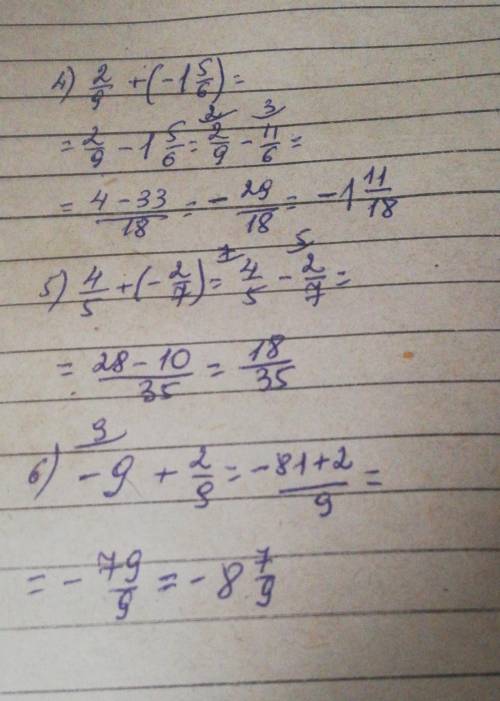 4) 2/9 + (-1 5/6) =
= 2/9 - 1 5/6 = 2/9 (2) - 11/6 (3) =
= (4 - 33)/18 = - 29/18 = -1 11/18
5) 4/5 + (- 2/7) = 4/5 (7) - 2/7 (5) =
= (28 - 10)/35 = 18/35
6) -9 (9) + 2/9 = (-81+2)/9 =
= - 79/9 = - 8 7/9